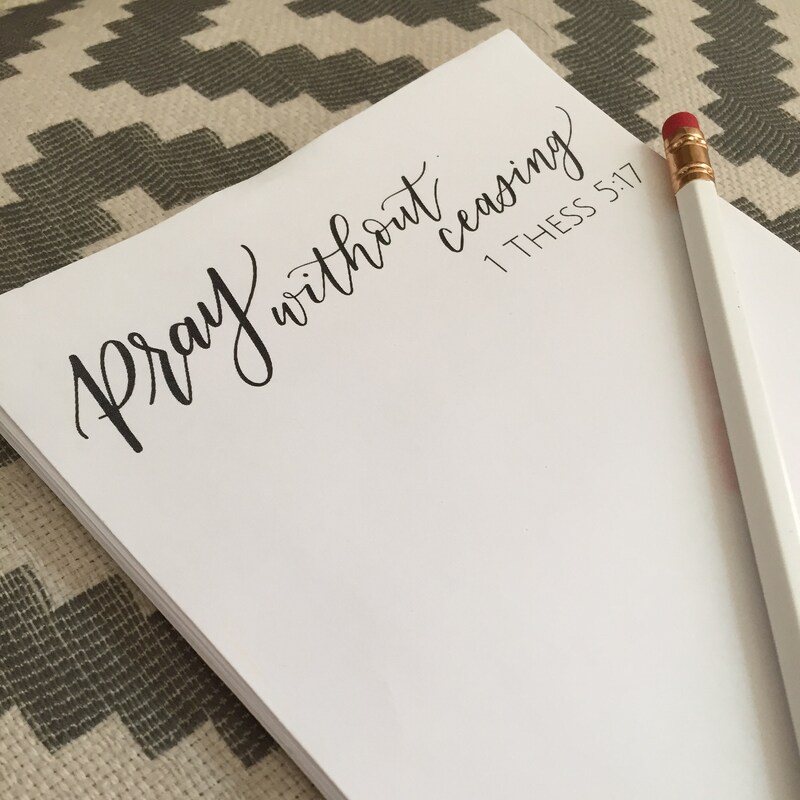 pray without ceasing
1 THESS 5:17